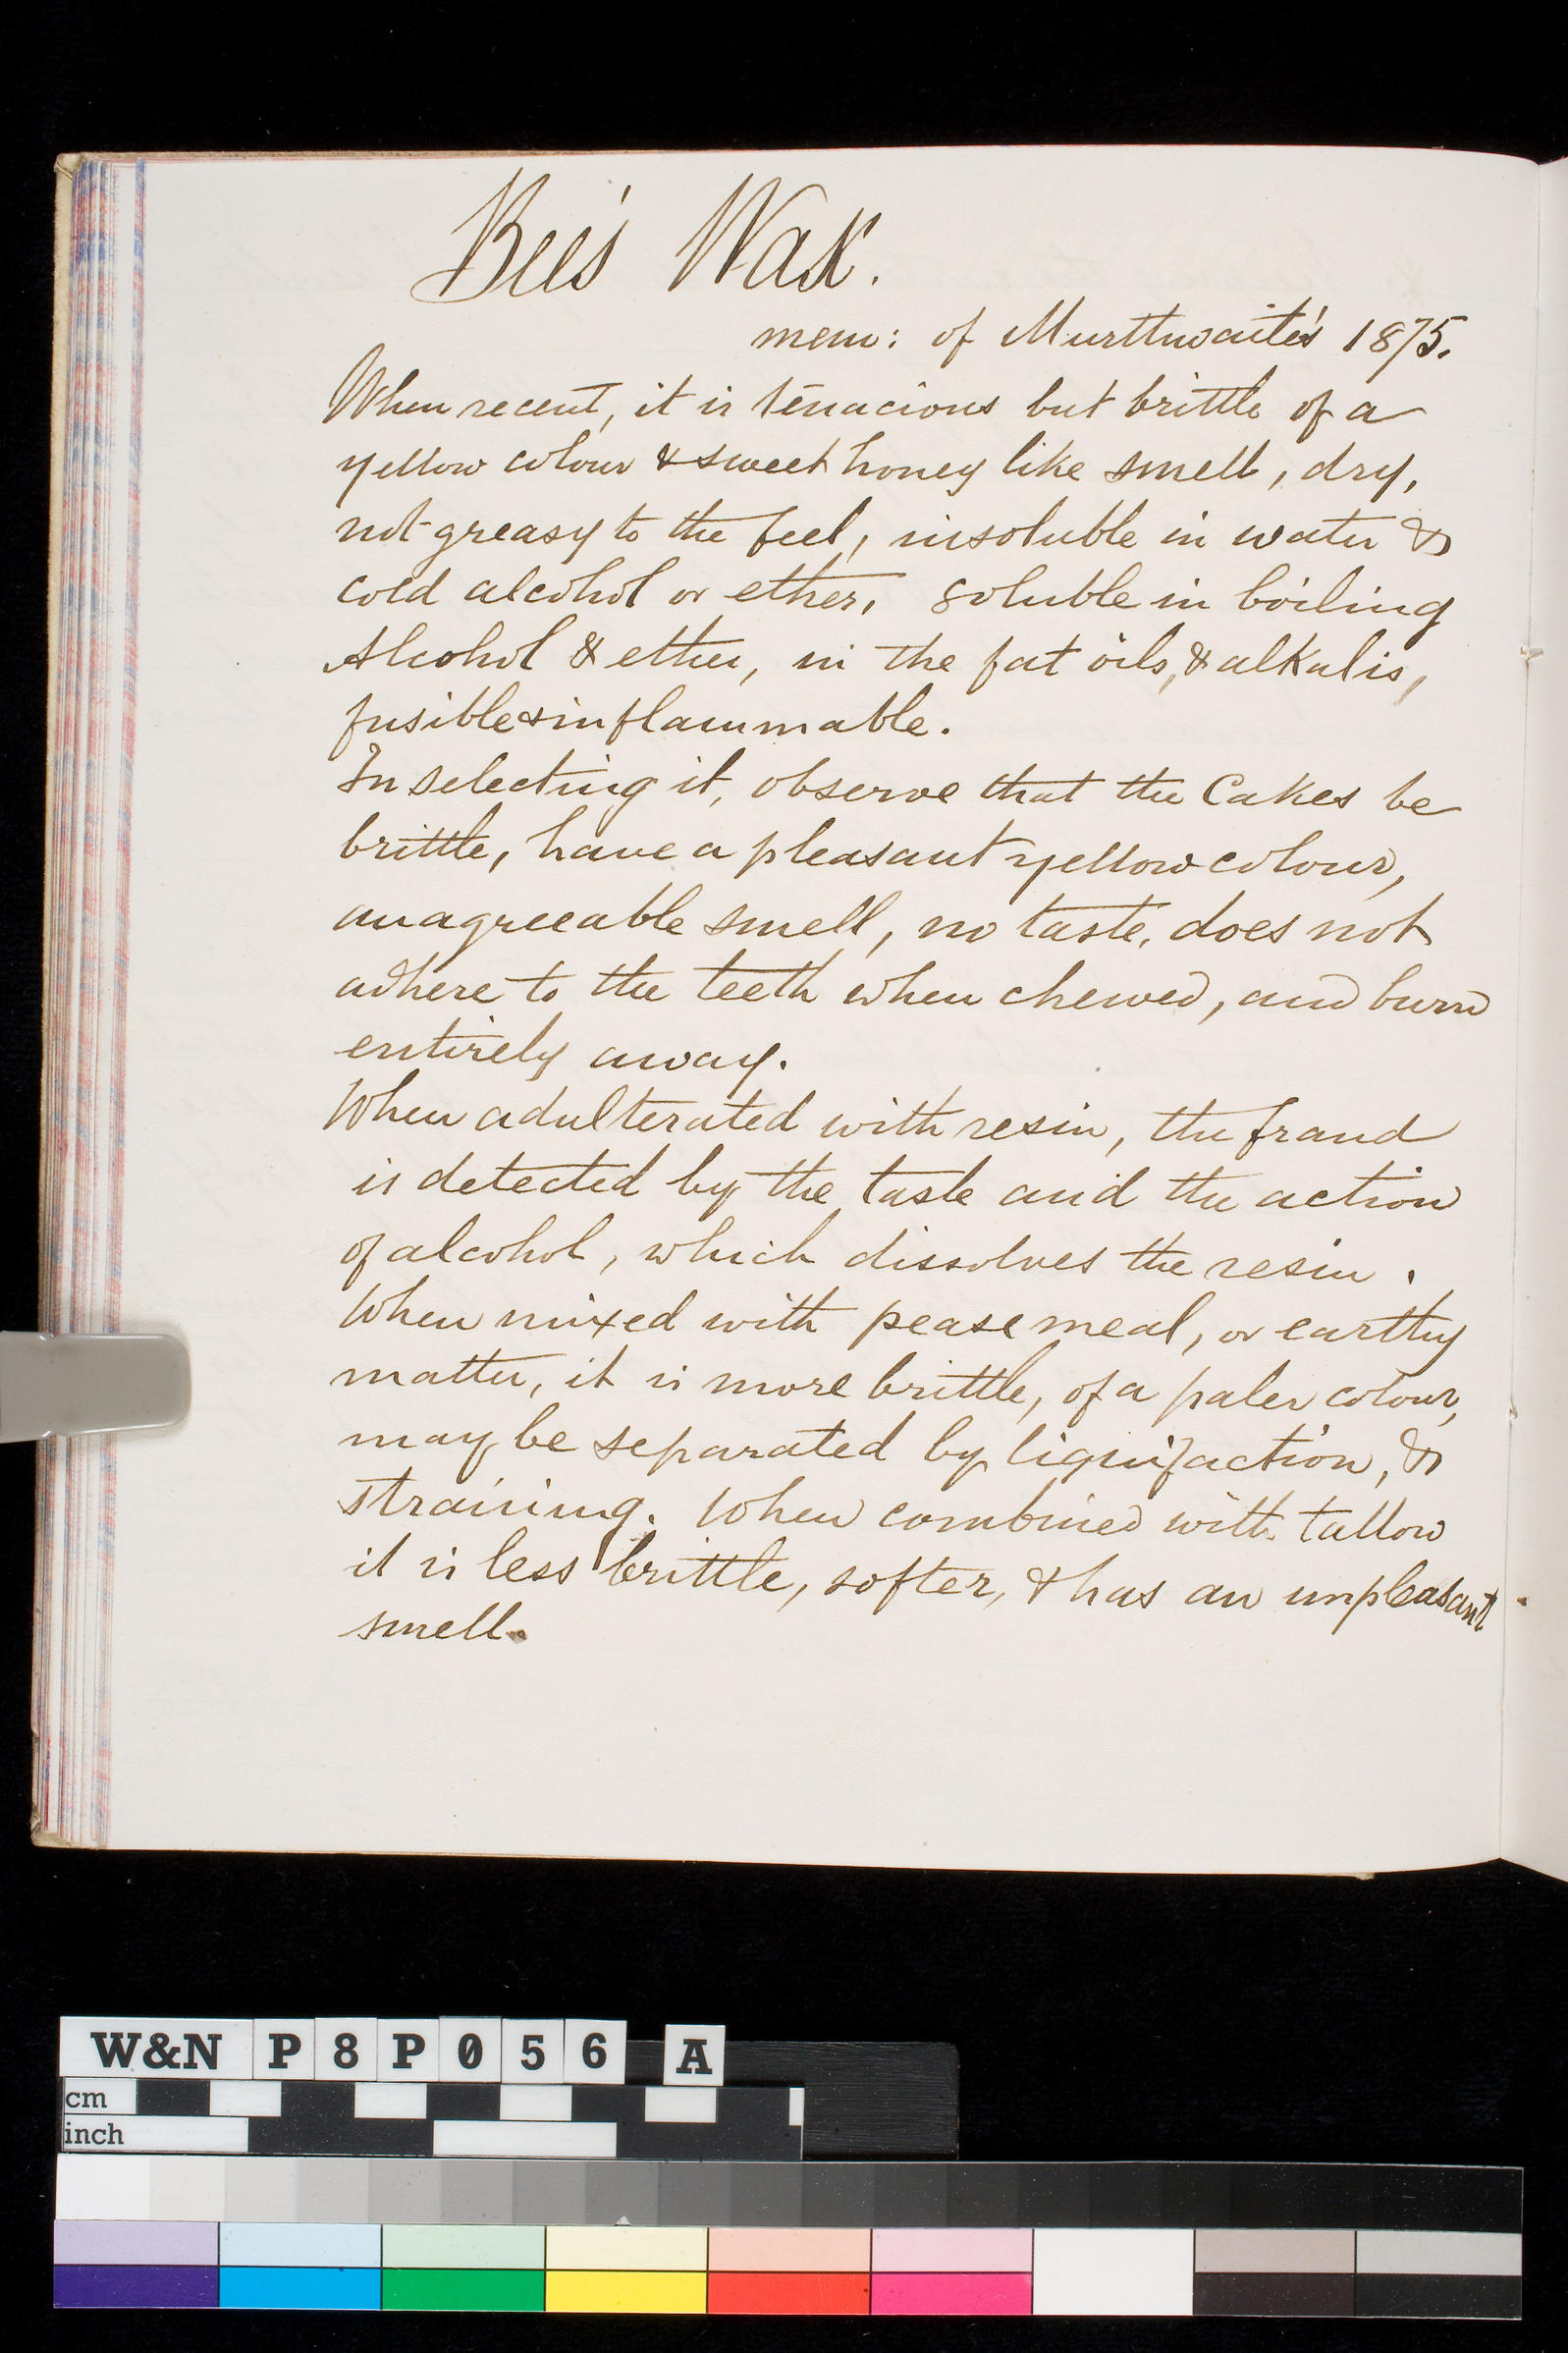 Bee's Wax.
mem: of Murttwaite's 1875.
When recent, it is tenacious but brittle of a
yellow colour & sweet honey like smell, dry,
not greasy to the feel, insoluble in water &
cold alcohol or ether, soluble in boiling
Alcohol & ether, in the fat oils, & alkalis,
fusible & inflammable.
In selecting it, observe that the Cakes be
brittle, have a pleasant yellow colour,
an agreeable smell, no taste, does not
adhere to the teeth when chewed, and burn
entirely away.
When adulterated with resin, the fraud
is detected by the taste and the action
of alcohol, which dissolves the resin.
When mixed with pease meal, or earthy
matter, it is more brittle, of a paler colour,
may be separated by liquifaction, &
straining. When combined with tallow
it is less brittle, softer, & has an unpleasant
smell.
W&N P8P056 A
cm
inch